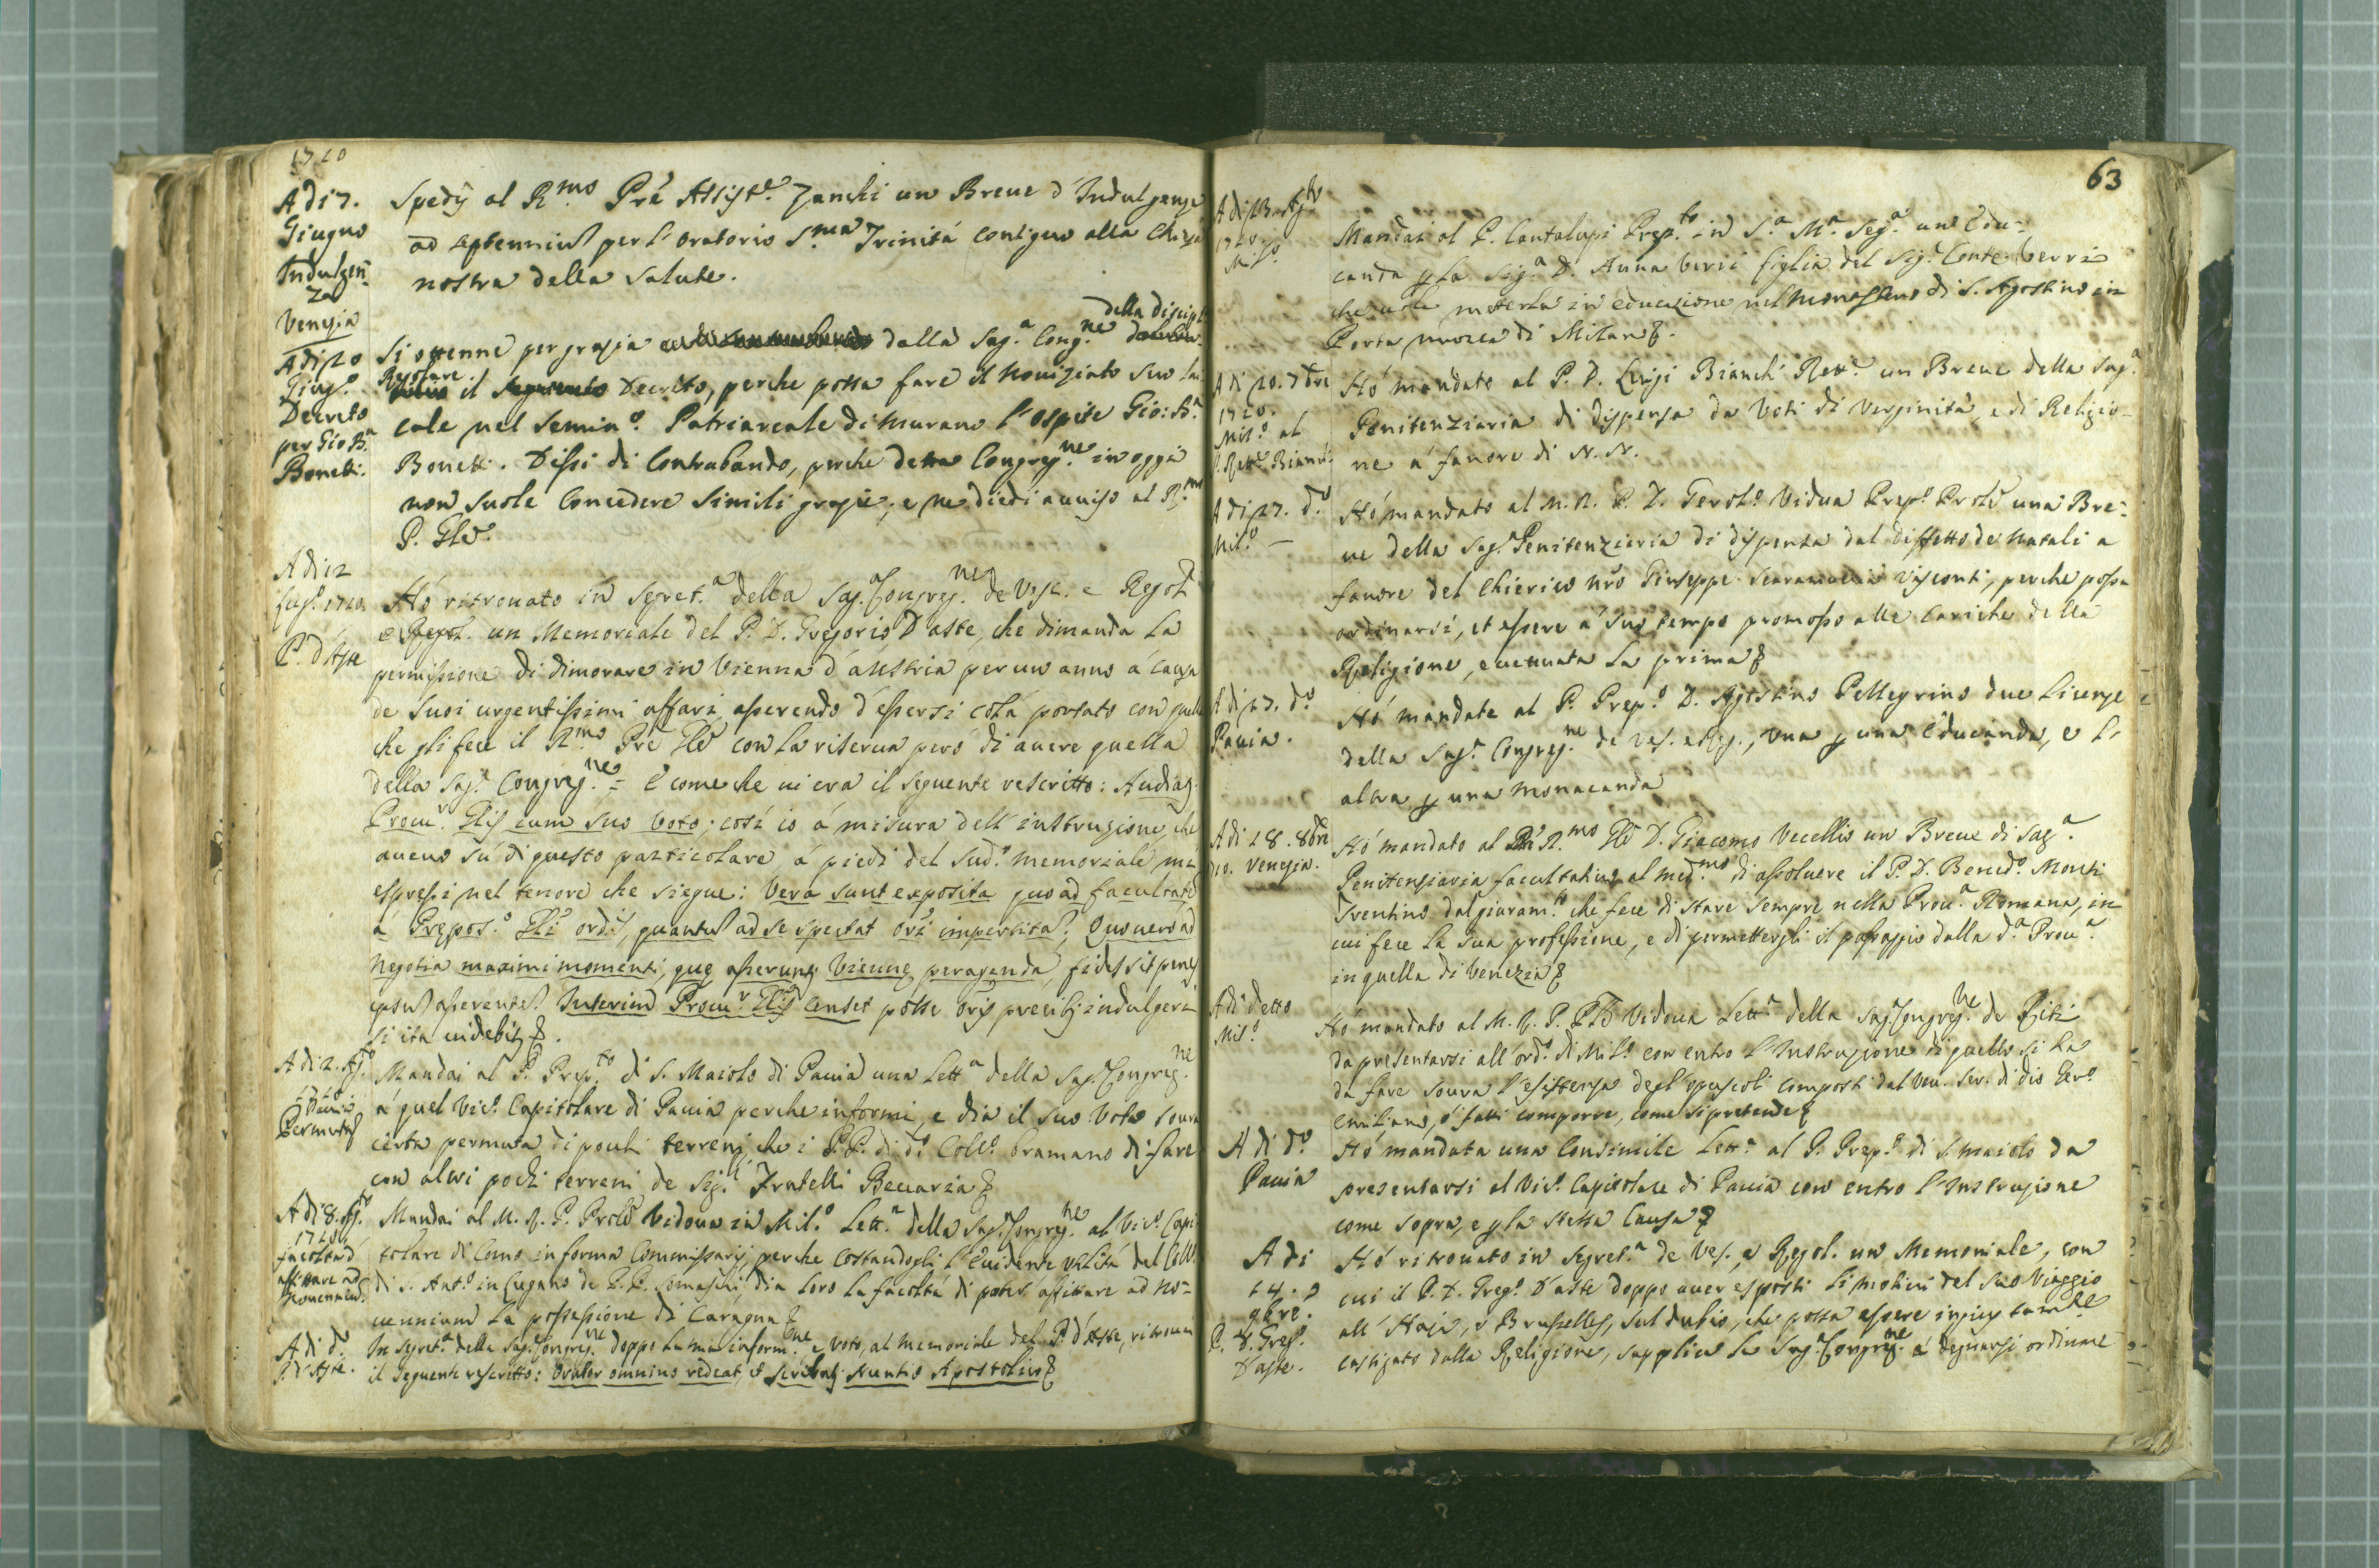 1720
A di 7.
Giugno
Indulgen-
za
Venezia
Spedÿ al R.mo Prê Assist.e Zanchi un Breue d'Indulgenze
ad septennium per l'Oratorio S.ma Trinitá contiguo alla Chiesa
nostra della Salute.
A di 20
Giug.o
Decreto
per Gio: B.a
Bonetti.
Si ottenne per grazia dalla Sag.a Cong.ne della discipl.
Regolare il Decreto, perche possa fare il Nouiziato suo lai
cale nel Semin.o Patriarcale di Murano l'ospite Gio: B.a
Bonetti. Dissi di Contrabando, perche detta Congreg.ne in oggi
non suole Concedere Simili grazie, e ne diedi auuiso al R.mo
P. Gñle.
A di 12
Lug.o 1720.
P. d'Aste
Hó ritrouato in Segret.a della Sag. Congreg.ne de Vesc. e Regol.
e Regol. un Memoriale del P. D. Gregorio D'aste, che dimanda la
permissione di dimorare in Vienna d'austria per un anno á causa
de suoi urgentissimi affari, asserendo d'essersi colá portato con quella
che gli fece il R.mo Prê Gñle con la riserua peró di auere quella
della Sag.a Congreg.ne = E come che ui era il seguente rescritto: Audiat.
Procu.r Gñlis cum suo Voto; cosi io á misura dell'instruzione, che
aueuo sú di questo particolare á piedi del sud.o memoriale mi
espressi nel tenore che siegue: Vera sunt exposita quoad facultatem
á Prępos.o Gñli ord.is, quantum ad se spectat ori impertitam; Quo uero ad
Negotia maximi momenti, quę asseruntur Viennę peragenda, fides sit penes
ipsum asserentem. Interim Procu.r Gñlis Censet posse oris precibus indulgeri
si ita uidebitur.
A di 2. Ag.o
1720
Pauia
Permuta
Mandai al P. Prep.to di S. Maiolo di Pauia una Lett.a della Sag. Congreg.ne
á quel Vic.o Capitolare di Pauia perche informi, e dia il suo Voto soura
certa permuta di pochi terreni, che i P.P. di d.o Coll.o bramano di fare
con altri pochi terreni de Sig.i Fratelli Beccaria
A di 8. Ag.o
1720
facoltá d'
affittare ad
Nouennium
Mandai al M. R. P. Prõle Vidoua in Mil.o Lett.a della Sag. Congreg.ne al Vic.o Capi
tolare di Como in forma Commissarij, perche Costandogli l'Euidente Vtilitá del Coll.o
di S. Ant.o in Lugano de P.P. Somaschi, dia loro la facoltá di poter affittare ad No=
uennium la possessione di Caragna
A di d.o
P. d'Aste.
In Segret.a della Sag. Congreg.ne doppo la mia inform.ne e Voto, al Memoriale del P. d'Aste, ritrouai
il Seguente rescritto: Orator omnino redeat, et scribatur Nuntio Apostolico
63
A di 13. Ag.to
1720.
Mil.o
Mandai al P. Cantalupi Prep.to in S.a M.a Seg.a un Edu=
canda p la Sig.a D. Anna Verri figlia del Sig. Conte Verri
che uole metterla in educazione nel Monastero di S. Agostino in
Porta nuoua di Milano.
A di 20. 7bre
1720.
Mil.o al
P. Rett.e Bianchi
Hó mandato al P. D. Luigi Bianchi Rett.e un Breue della Sag.a
Penitenziaria di dispensa da Voti di Verginitá, e di Religio-
ne á fauore di N. N.
A di 27. d.o
Mil.o —
Hó mandato al M. R. P. D. Gerol.o Vidua Prep.o Prõle una Bre=
ue della Sag. Penitenzieria di dispensa dal diffetto de Natali a
fauore del Chierico nr̃o Giuseppe Scaramuccia Visconti, perche possa
ordinarsi, et essere á suo tempo promosso alle Cariche della
Religione, eccettuata la prima
A di 27. d.o
Pauia.
Hó mandate al P. Prep.o D. Agostino Pellegrino due Licenze
della Sag. Congreg.ne de Ves. e Reg., Vna p una Educanda, e l'
altra p una Monacanda
A di 28. 8bre
20. Venezia.
Hó mandato al R.mo Gñle D. Giacomo Vecellio un Breue di Sag.a
Penitenziaria facultatiuo al med.mo di assoluere il P. D. Bened.o Monti
Trentino dal giuram.to che fece di stare sempre nella Prou.a Romana, in
cui fece la sua professione, e di permettergli il passaggio dalla d.a Prou.a
in quella di Venezia
A di detto
Mil.o
Hó mandato al M. R. P. Prõle Vidoua Lett.a della Sag. Congreg.ne de Riti
da presentarsi all'ord.o di Mil.o con entro l'Instruzione di quello si ha
da fare soura l'esistenza degl'opuscoli composti dal Ven. Ser. di Dio Gir.o
Emiliano, ó fatti comporre, come si pretende
A di d.o
Pauia
Hó mandata una Consimile Lett.a al P. Prep.o di S. Maiolo da
presentarsi al Vic.o Capitolare di Pauia con entro l'Instruzione
come sopra, e p la stessa Causa
A di
14.
9bre.
P. D. Greg.o
D'aste.
Hó ritrouato in Segret.a de Ves. e Regol. un Memoriale, con
cui il P. D. Greg.o D'aste doppo auer esposti li motiui del suo Viaggio
all'Haja, e Brusselles, sul dubio, che possa essere ingiustam.te
castigato dalla Religione, supplica la Sag. Congreg.ne á degnarsi ordinare